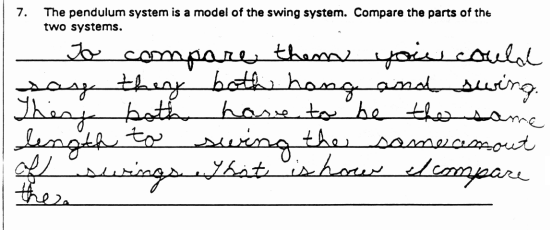 7. The pendulum system is a model of the swing system. Compare the parts of the
two systems.
To compare them you could
say they both hang and swing.
They both have to be the same
length to swing the same amout
of swings. That is how I compare
the.